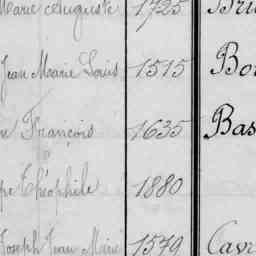 Marie Auguste 1725 Bru
Jean Marie Louis 1515 Bo
n François 1635 Bas
pe Théophile 1880
Joseph Jean Marie 1579 Cavr